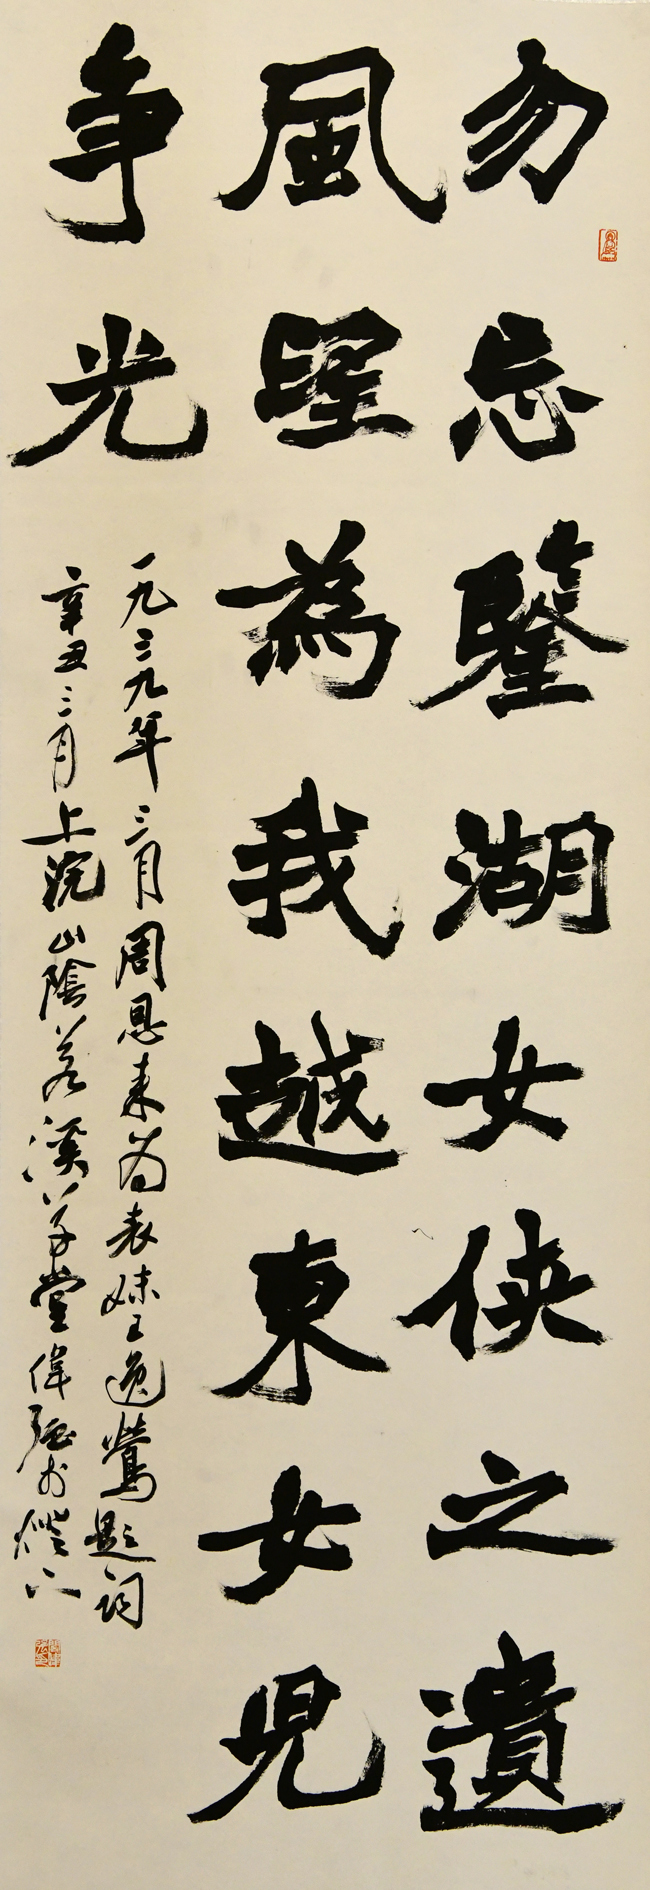 勿忘鑒湖女俠之遺
風望為我越東女兒
爭光
一九三九年三月周恩来为表妹王逸鶯題詞
辛丑三月上浣山陰若溪草堂偉強書